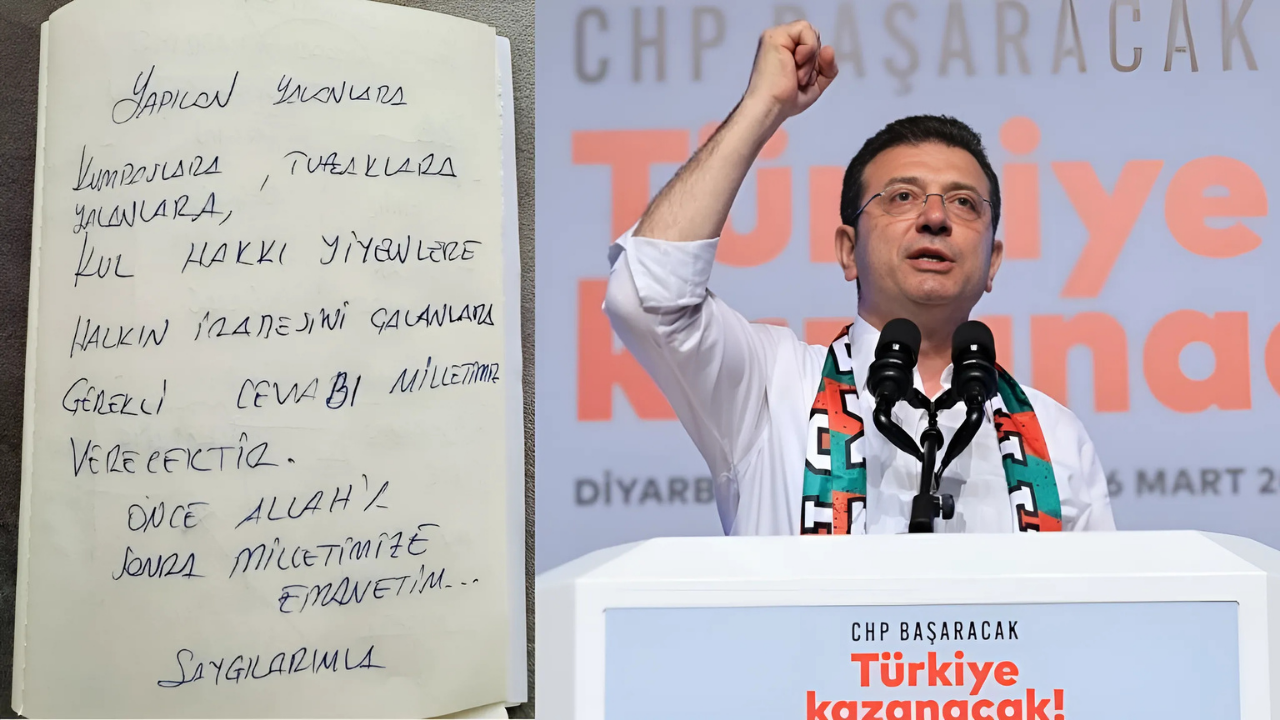 YAPILAN YALANLARA
KUMPASLARA, TUZAKLARA
YALANLARA,
KUL HAKKI YİYENLERE
HALKIN İRADESİNİ ÇALANLARA
GEREKLİ CEVABI MİLLETİMİZ
VERECEKTİR.
ÖNCE ALLAH'A
SONRA MİLLETİMİZE
EMANETİM...
SAYGILARIMLA
CHP BAŞARACAK
Türkiye
kazanac
DİYARB 6 MART 2
CHP BAŞARACAK
Türkiye
kazanacak!